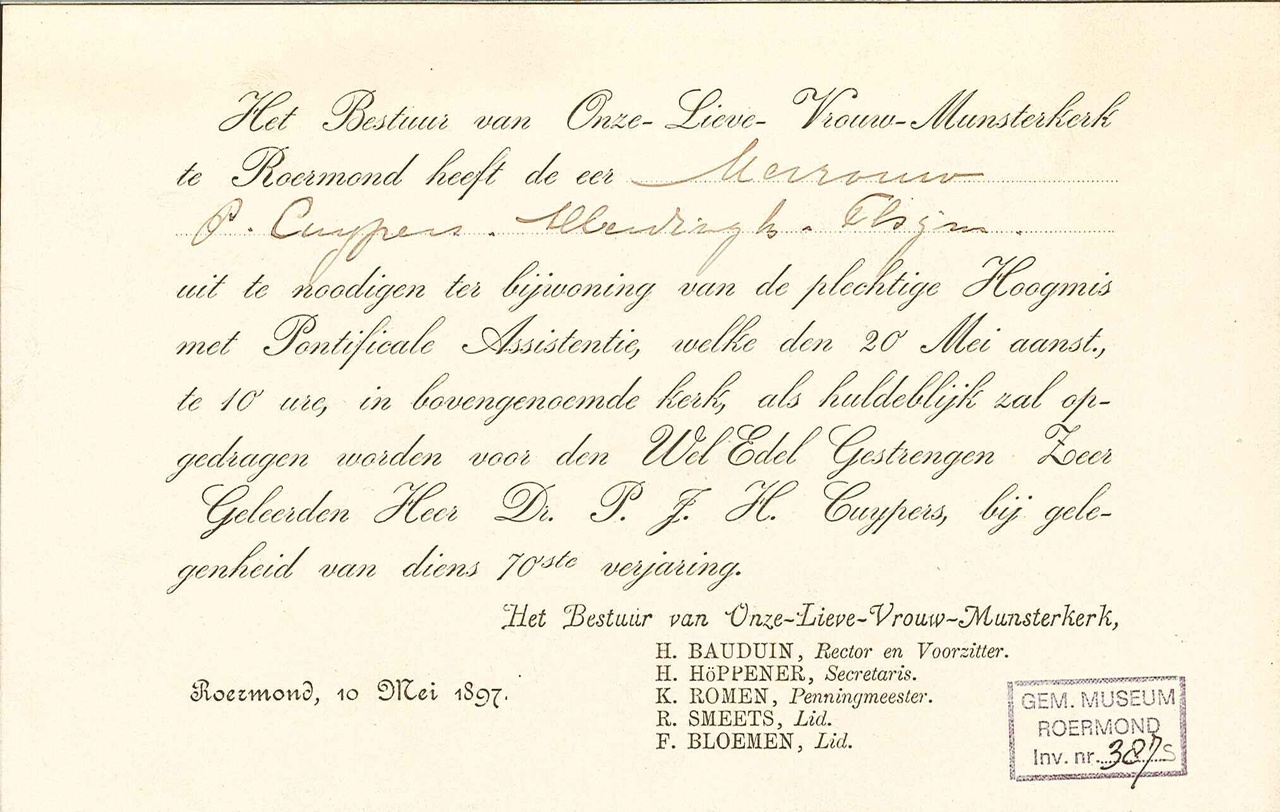 Het Bestuur van Onze-Lieve-Vrouw-Munsterkerk
te Roermond heeft de eer Mevrouw
P. Cuypers. Alberdingk. Thijm.
uit te noodigen ter bijwoning van de plechtige Hoogmis
met Pontificale Assistentie, welke den 20 Mei aanst.,
te 10 ure, in bovengenoemde kerk, als huldeblijk zal op-
gedragen worden voor den Wel Edel Gestrengen Zeer
Geleerden Heer Dr. P. J. H. Cuypers, bij gele-
genheid van diens 70ste verjaring.
Het Bestuur van Onze-Lieve-Vrouw-Munsterkerk,
H. BAUDUIN, Rector en Voorzitter.
H. HöPPENER, Secretaris.
K. ROMEN, Penningmeester.
R. SMEETS, Lid.
F. BLOEMEN, Lid.
Roermond, 10 Mei 1897.
GEM. MUSEUM
ROERMOND
Inv. nr. 387 S